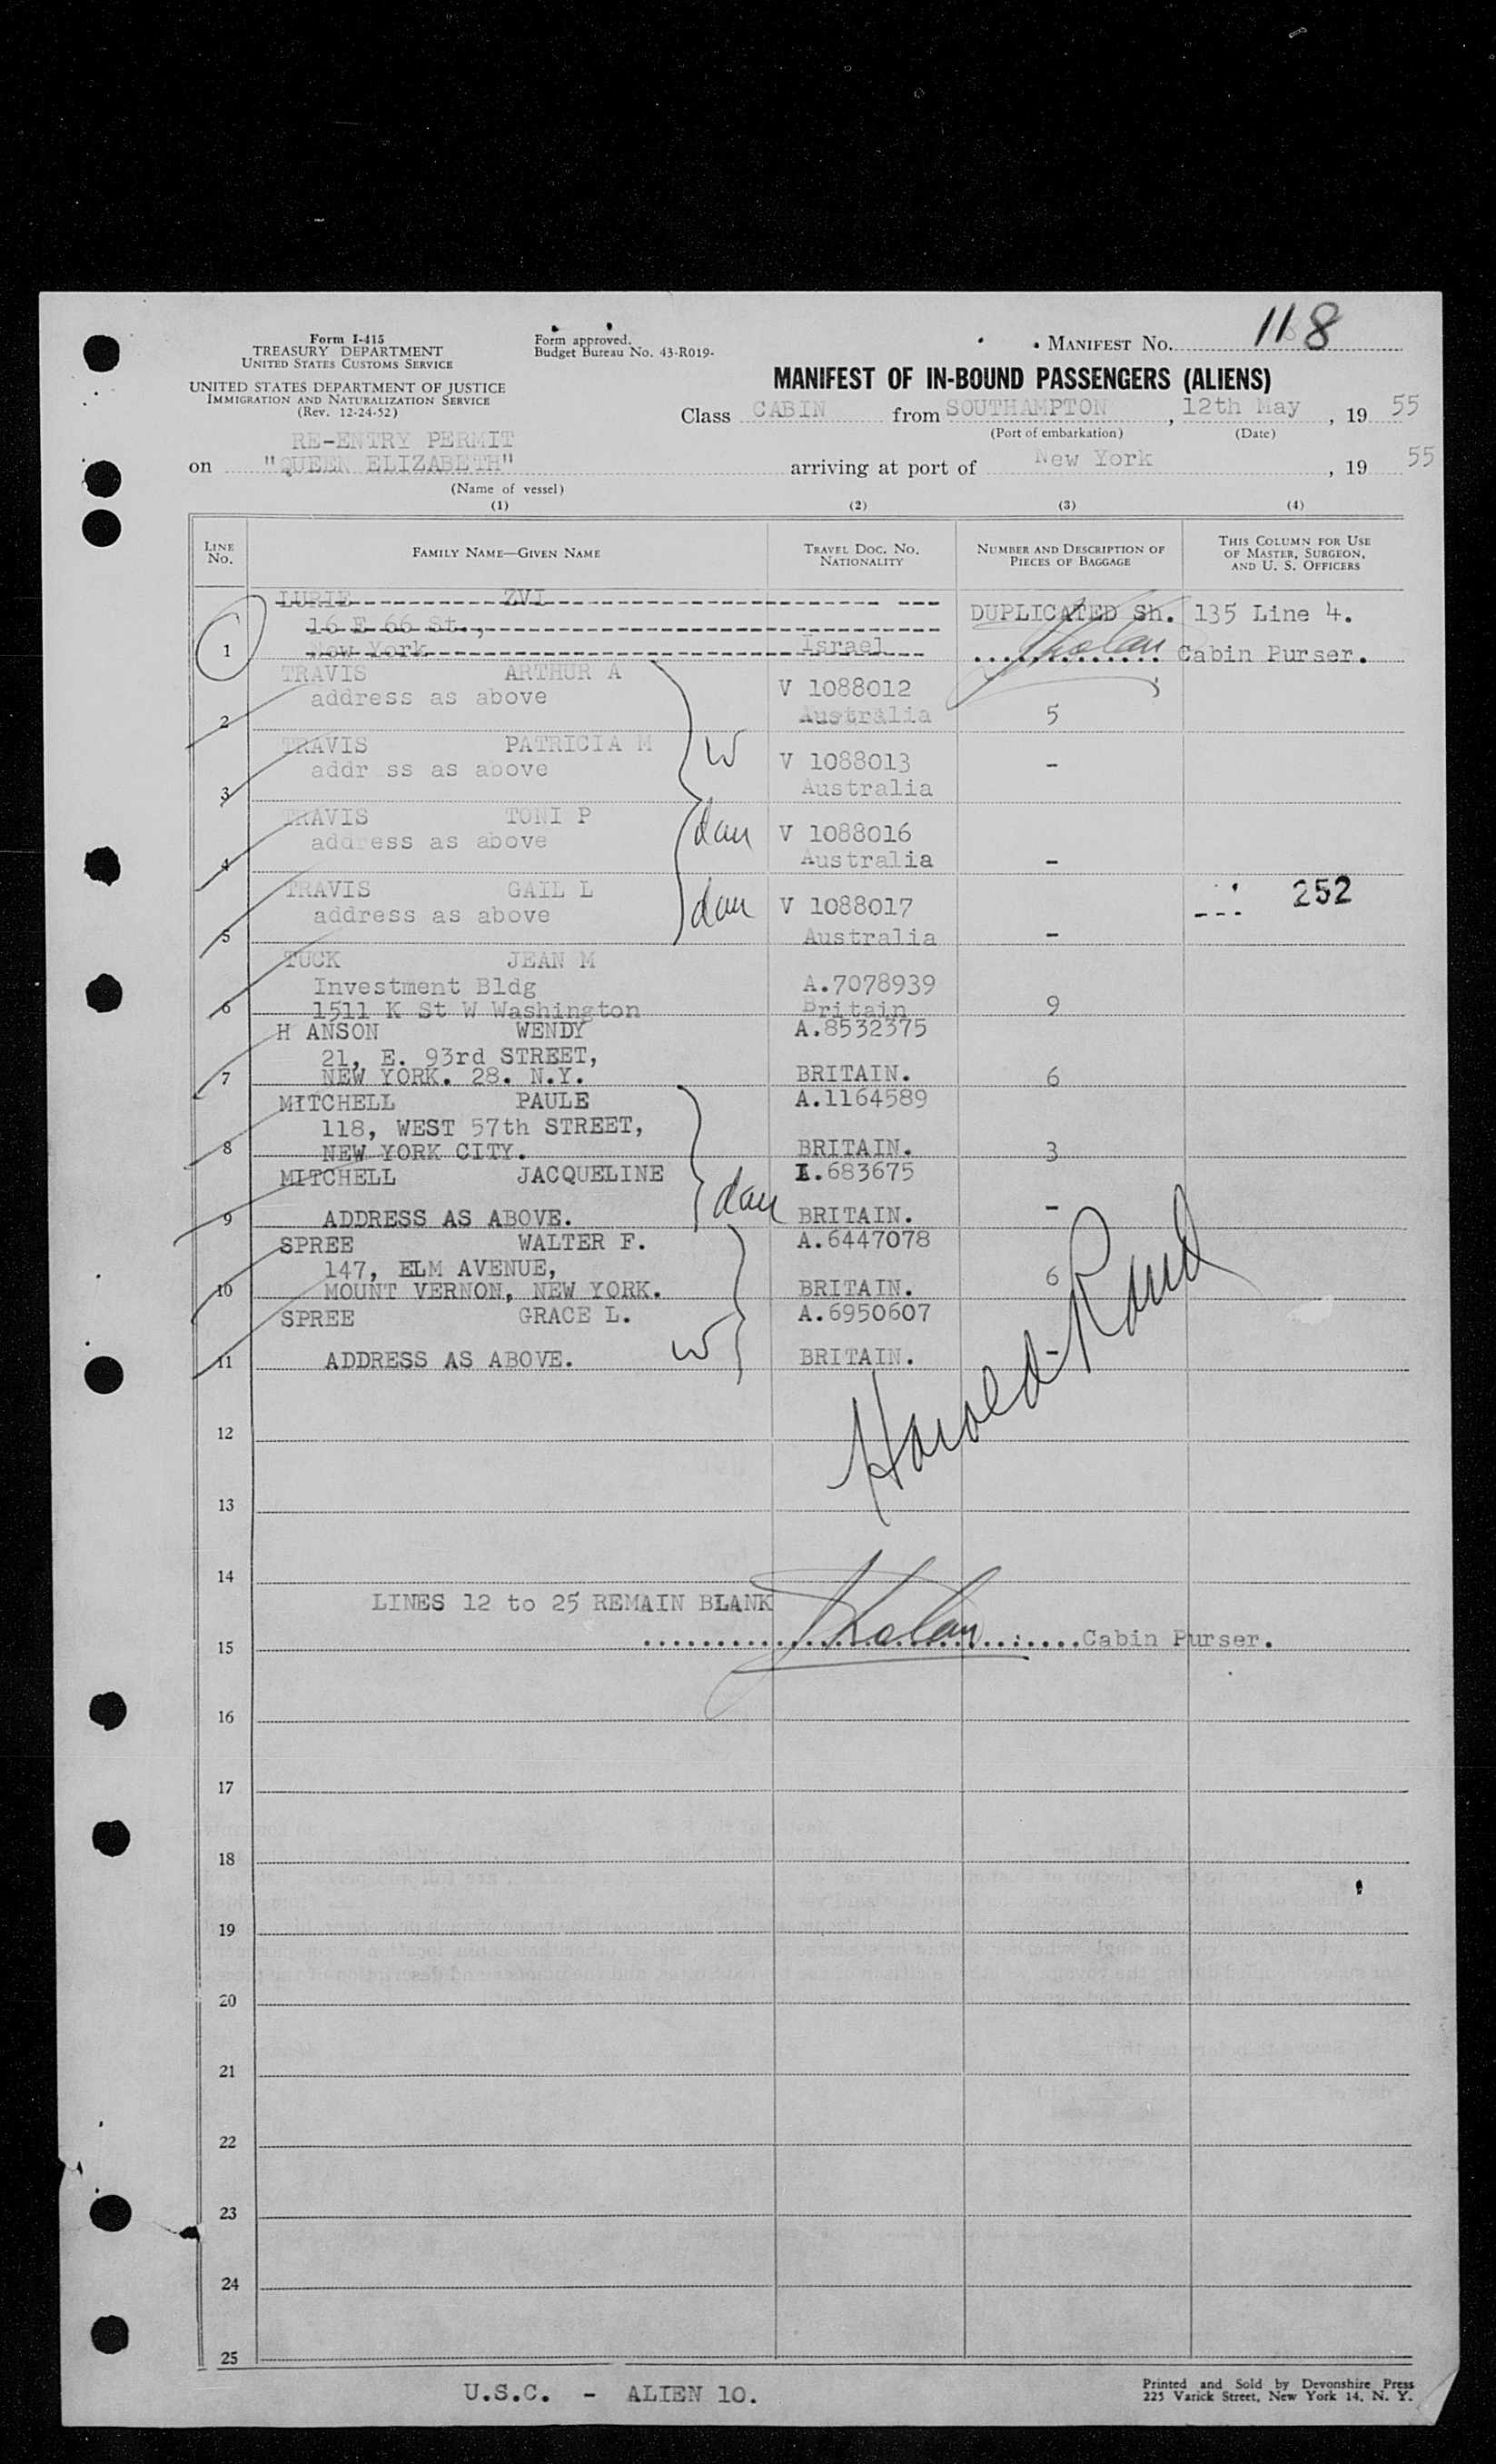 Form I-415
TREASURY DEPARTMENT
UNITED STATES CUSTOMS SERVICE
UNITED STATES DEPARTMENT OF JUSTICE
IMMIGRATION AND NATURALIZATION SERVICE
(Rev. 12-24-52)
Form approved.
Budget Bureau No. 43-R019-
MANIFEST NO. 118
MANIFEST OF IN-BOUND PASSENGERS (ALIENS)
Class CABIN from SOUTHAMPTON, 12th May, 19 55
(Port of embarkation) (Date)
RE-ENTRY PERMIT
on "QUEEN ELIZABETH" arriving at port of New York, 19 55
(Name of vessel)
(1) (2) (3) (4)
LINE No. FAMILY NAME—GIVEN NAME TRAVEL DOC. NO. NATIONALITY NUMBER AND DESCRIPTION OF PIECES OF BAGGAGE THIS COLUMN FOR USE OF MASTER, SURGEON, AND U. S. OFFICERS
LURIE ZVI
16 E 66 St., DUPLICATED Sh. 135 Line 4.
1 New York Israel Cabin Purser.
TRAVIS ARTHUR A
address as above V 1088012
2 Australia 5
TRAVIS PATRICIA M W
addr ss as above V 1088013 -
3 Australia
TRAVIS TONI P
address as above dau V 1088016
4 Australia -
TRAVIS GAIL L --- 252
address as above dau V 1088017
5 Australia -
TUCK JEAN M
Investment Bldg A.7078939
6 1511 K St W Washington Britain 9
H ANSON WENDY A.8532375
21, E. 93rd STREET,
7 NEW YORK. 28. N.Y. BRITAIN. 6
MITCHELL PAULE A.1164589
118, WEST 57th STREET,
8 NEW YORK CITY. BRITAIN. 3
MITCHELL JACQUELINE I.683675
9 ADDRESS AS ABOVE. dau BRITAIN. -
SPREE WALTER F. A.6447078
147, ELM AVENUE,
10 MOUNT VERNON, NEW YORK. BRITAIN. 6
SPREE GRACE L. A.6950607
11 ADDRESS AS ABOVE. W BRITAIN. -
Harold Rand
12
13
14
LINES 12 to 25 REMAIN BLANK
15 Cabin Purser.
16
17
18
19
20
21
22
23
24
25
U.S.C. - ALIEN 10.
Printed and Sold by Devonshire Press
225 Varick Street, New York 14, N. Y.